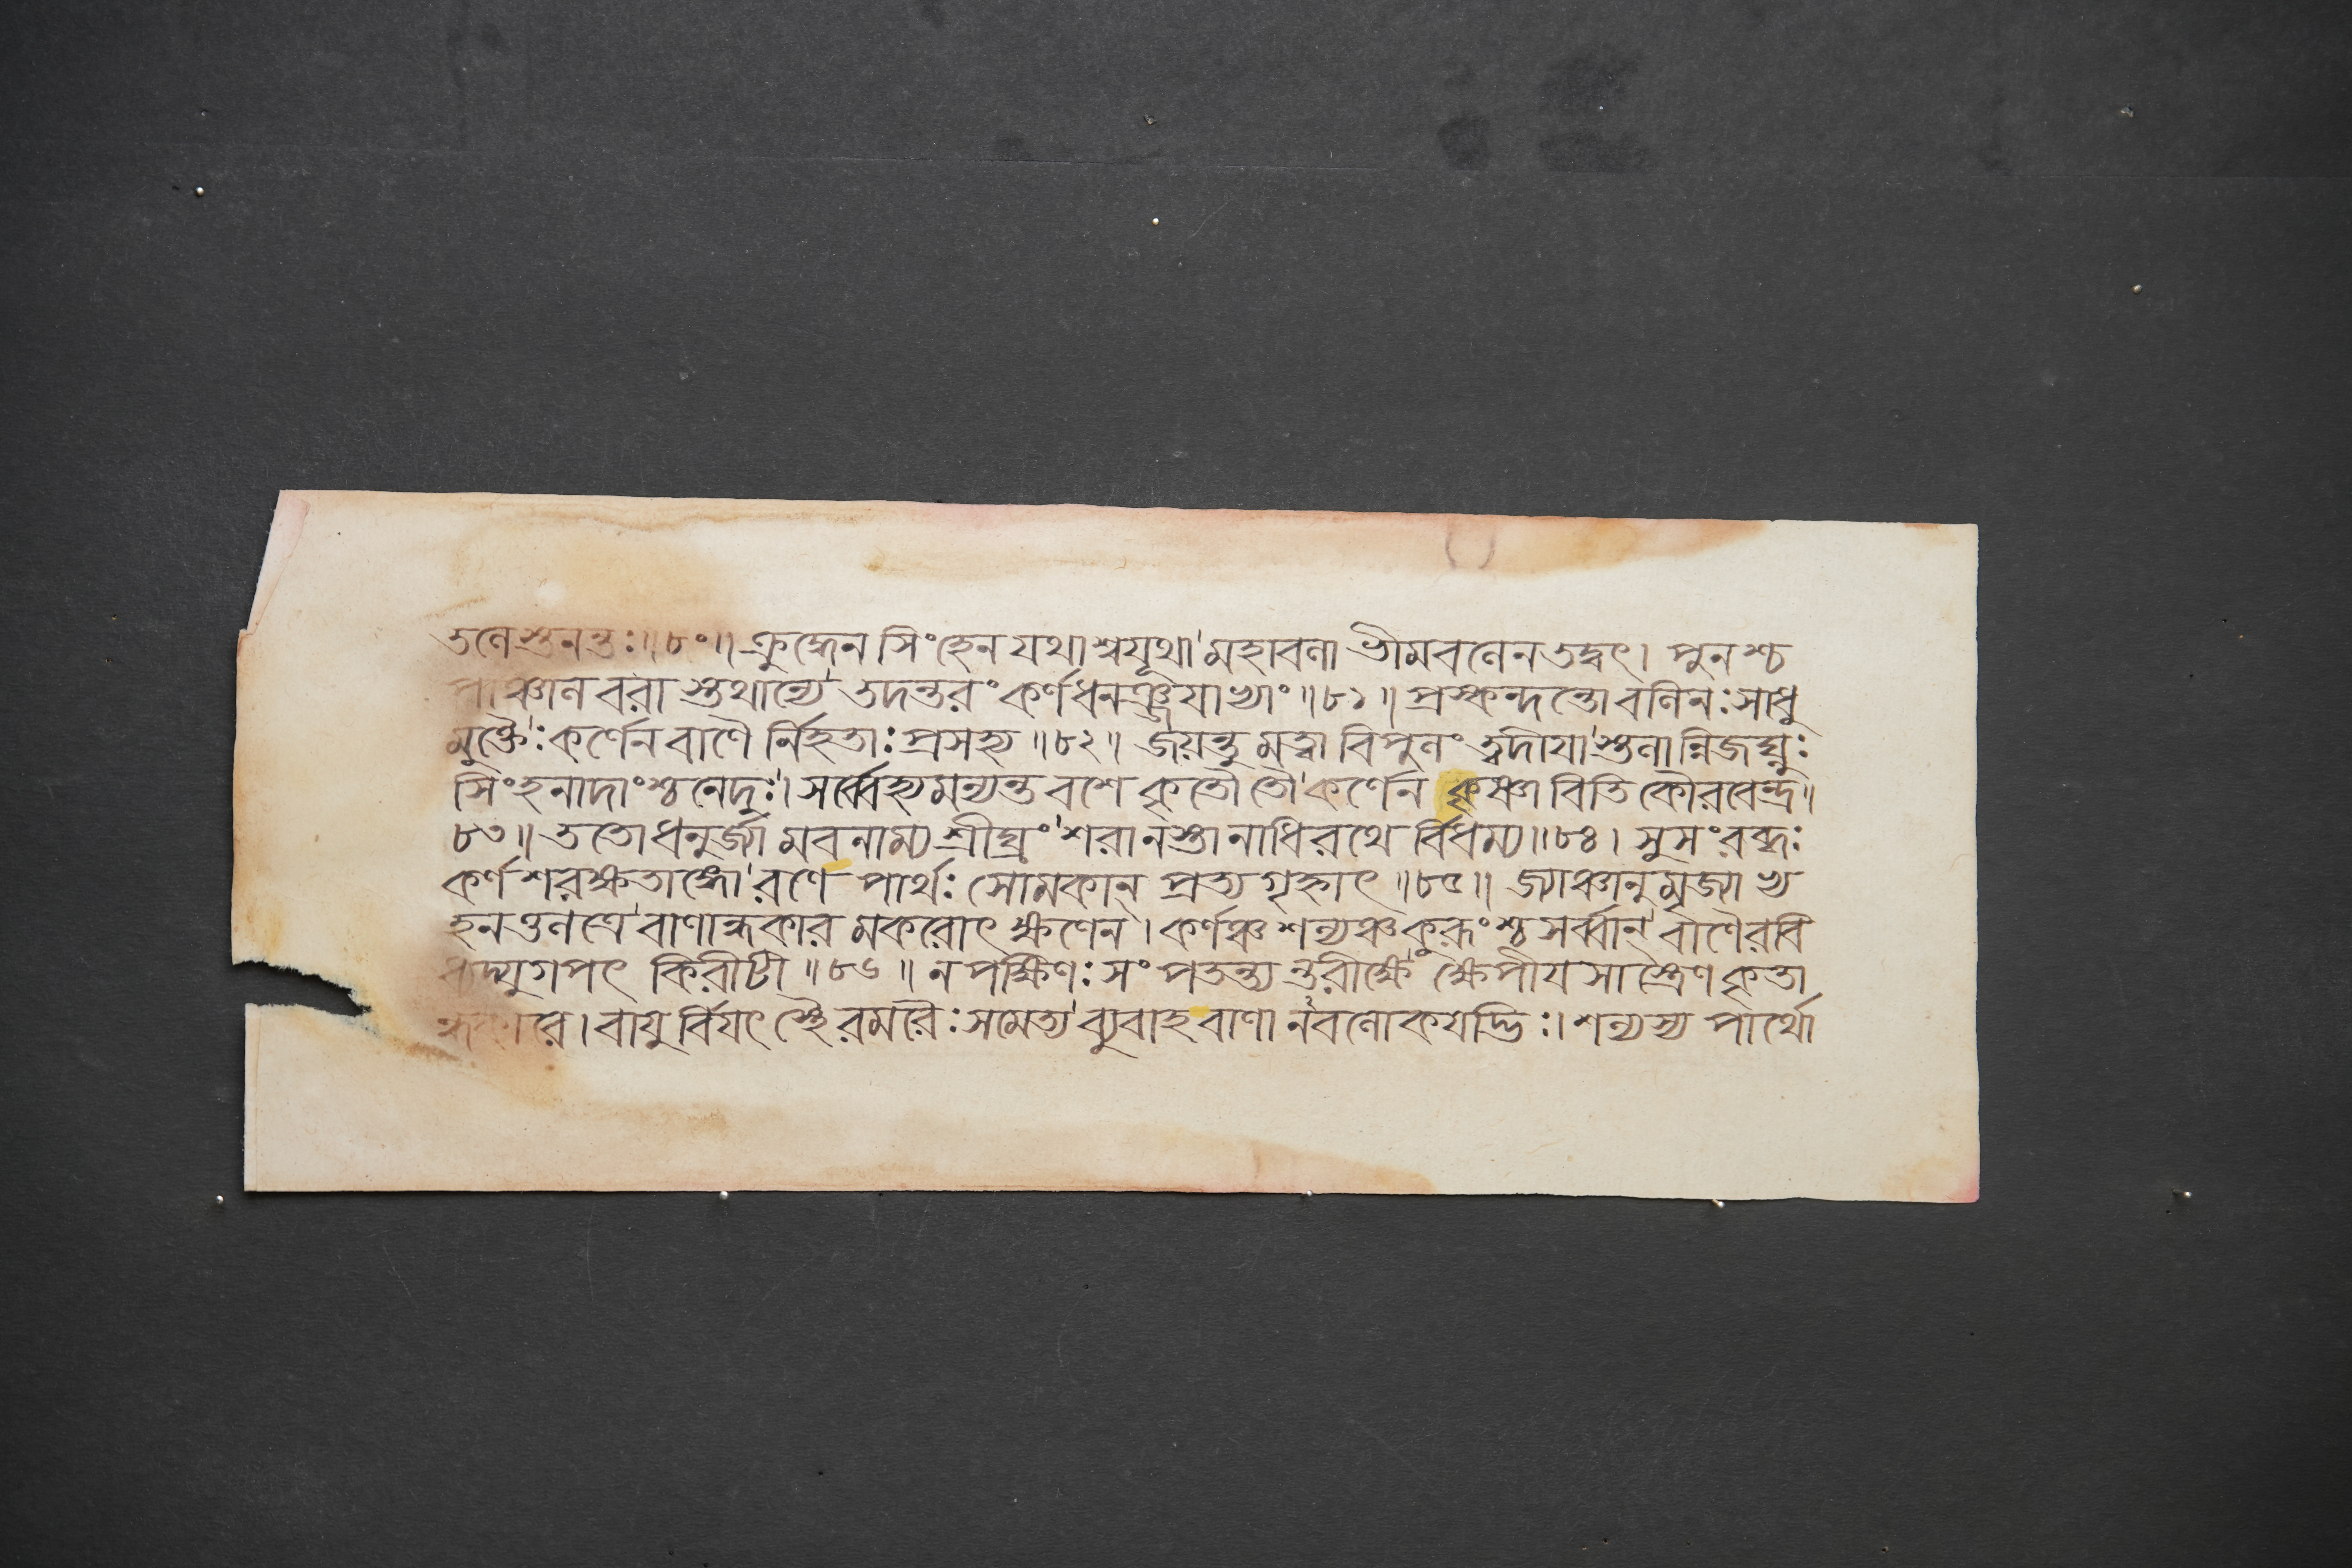 তলে স্তনন্তঃ॥৮০॥ ক্রুদ্ধেন সিংহেন যথাশ্বযূথা মহাবলা ভীমবলেন তদ্বৎ। পুনশ্চ
পাঞ্চালবরা স্তথান্যে তদন্তরং কর্ণধনঞ্জয়াখ্যাং॥৮১॥ প্রস্কন্দন্তো বলিনঃ সাধু
মুক্তৈঃ কর্ণেন বাণৈ র্নিহতাঃ প্রসহ্য॥৮২॥ জয়ন্তু মত্বা বিপুলং ত্বদীয়া স্তলান্নিজঘ্নুঃ
সিংহনাদাংশ্চ নেদুঃ। সর্ব্বেহ্যমন্যন্ত বশে কৃতৌ তৌ কর্ণেন কৃষ্ণাবিতি কৌরবেন্দ্র॥
৮৩॥ ততো ধনুর্জ্যা মবনাম্য শ্রীঘ্রং শরানস্তানাধিরথে র্বিধম্য॥৮৪। সুসংরব্ধঃ
কর্ণশরক্ষতাঙ্গো রণে পার্থঃ সোমকান্ প্রত্যগৃহ্নাৎ॥৮৫॥ জ্যাঞ্চানুমৃজ্যাখ্য
হনত্তলত্রে বাণান্ধকার মকরোৎ ক্ষণেন। কর্ণঞ্চ শল্যঞ্চ কুরূংশ্চ সর্ব্বান্ বাণৈরবি
ধ্যদ্যুগপৎ কিরীটী॥৮৬॥ ন পক্ষিণঃ সংপতন্ত্যন্তরীক্ষে ক্ষেপীয়সাস্ত্রেণ কৃতা
ন্ধকারে। বায়ু র্বিয়ৎস্থৈ রমরৈঃ সমেত্য ব্যুবাহ বাণা নবলোকয়দ্ভিঃ। শল্যস্য পার্থো